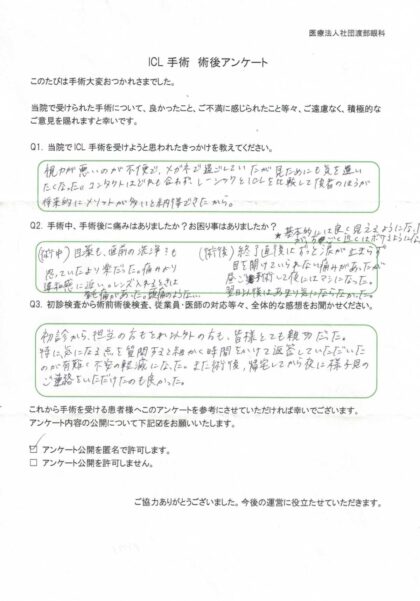 医療法人社団渡部眼科
ICL 手術 術後アンケート
このたびは手術大変おつかれさまでした。
当院で受けられた手術について、良かったこと、ご不満に感じられたこと等々、ご遠慮なく、積極的な
ご意見を賜れますと幸いです。
Q1. 当院で ICL 手術を受けようと思われたきっかけを教えてください。
視力が悪いのが不便で、メガネで過ごしていたが見ためにも気を遣い
たくなった。コンタクトはどれも合わず、レーシックとICLを比較して後者のほうが
将来的にメリットが多いと納得できたから。
Q2. 手術中、手術後に痛みはありましたか？お困り事はありましたか？
★基本的には良く見えるようになった！
(術中) 目薬も、直前の洗浄でも
思っていたより楽だった。痛みより
違和感に近い。レンズ入れるときは
(術後) 終了直後はずっと涙が止まらず
目を開けていられない痛みがあったが
して夜にはマシになった。
翌日以降はあまり気にならなかった。
Q3. 初診検査から術前術後検査、従業員・医師の対応等々、全体的な感想をお聞かせください。
初診から、担当の方もそれ以外の方も、皆様とても親切だった。
特に、気になる点を質問すると細かく時間をかけて返答していただいた
のが有難く不安の軽減になった。また術後、帰宅してから夜に様子見の
ご連絡をいただけたのも良かった。
これから手術を受ける患者様へこのアンケートを参考にさせていただければ幸いでございます。
アンケート内容の公開について下記☑をお願いいたします。
☑ アンケート公開を匿名で許可します。
□ アンケート公開を許可しません。
ご協力ありがとうございました。今後の運営に役立たせていただきます。